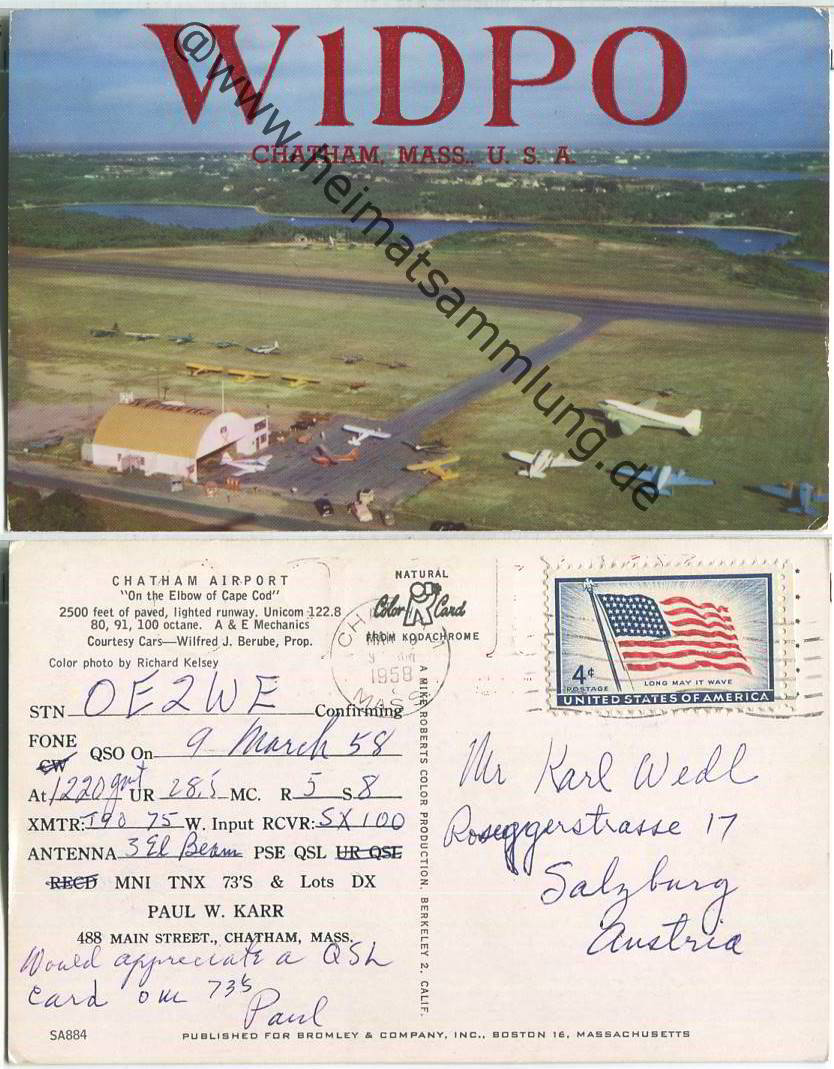 W1DPO
CHATHAM, MASS., U. S. A.
@www.heimatsammlung.de
CHATHAM AIRPORT
"On the Elbow of Cape Cod"
2500 feet of paved, lighted runway. Unicom 122.8
80, 91, 100 octane. A & E Mechanics
Courtesy Cars—Wilfred J. Berube, Prop.
Color photo by Richard Kelsey
NATURAL
Color Card
FROM KODACHROME
1958
MASS
4¢
POSTAGE
LONG MAY IT WAVE
UNITED STATES OF AMERICA
STN OE2WE Confirming
FONE
CW QSO On 9 March 58
At 1220 gmt UR 28.5 MC. R 5 S 8
XMTR: T90 75 W. Input RCVR: SX100
ANTENNA 3 El Beam PSE QSL UR QSL
RECD MNI TNX 73'S & Lots DX
PAUL W. KARR
488 MAIN STREET., CHATHAM, MASS.
Would appreciate a QSL
card om 73s
Paul
A MIKE ROBERTS COLOR PRODUCTION, BERKELEY 2, CALIF.
Mr Karl Wedl
Roseggerstrasse 17
Salzburg
Austria
SA884
PUBLISHED FOR BROMLEY & COMPANY, INC., BOSTON 16, MASSACHUSETTS